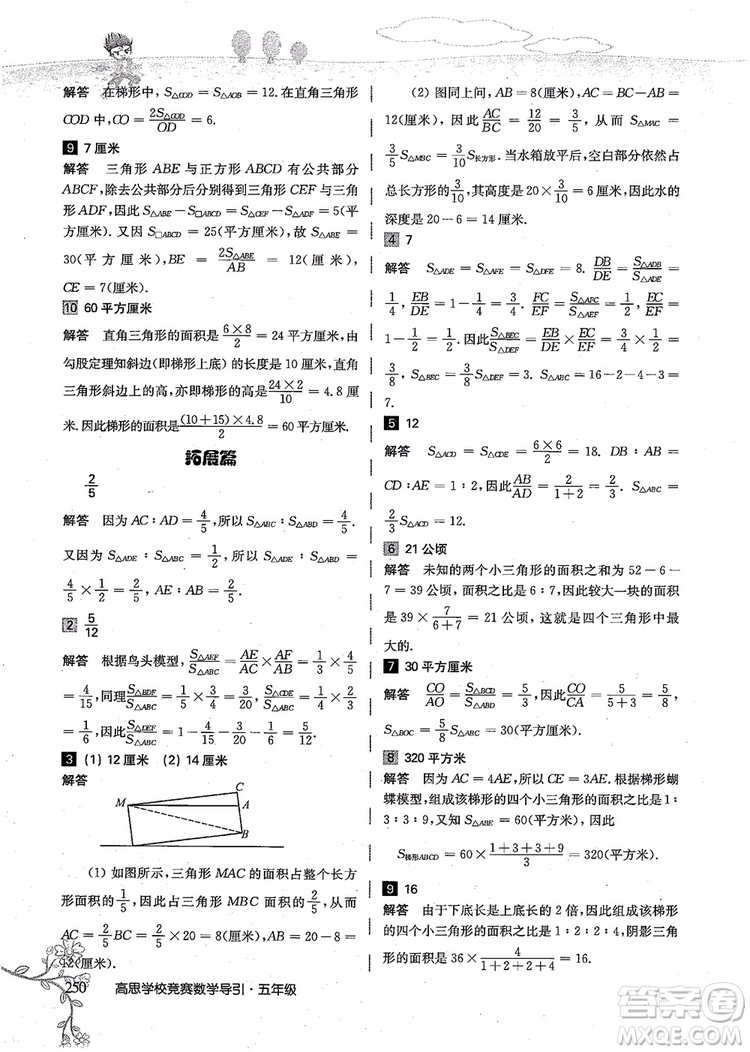 解答 在梯形中，S△COD = S△AOB = 12.在直角三角形
COD 中，CO = 2S△COD/OD = 6.
9 7 厘米
解答 三角形 ABE 与正方形 ABCD 有公共部分
ABCF，除去公共部分后分别得到三角形 CEF 与三角
形 ADF，因此 S△ABE－S□ABCD = S△CEF－S△ADF = 5(平
方厘米). 又因 S□ABCD = 25(平方厘米)，故 S△ABE =
30(平方厘米)，BE = 2S△ABE/AB = 12(厘米)，
CE = 7(厘米).
10 60 平方厘米
解答 直角三角形的面积是 6×8/2 = 24 平方厘米，由
勾股定理知斜边(即梯形上底)的长度是 10 厘米，直角
三角形斜边上的高，亦即梯形的高是 24×2/10 = 4.8 厘
米. 因此梯形的面积是 (10＋15)×4.8/2 = 60 平方厘米.
拓展篇
2/5
解答 因为 AC∶AD = 4/5，所以 S△ABC∶S△ABD = 4/5.
又因为 S△ADE∶S△ABC = 1/2，所以 S△ADE∶S△ABD =
4/5 × 1/2 = 2/5，AE∶AB = 2/5.
2 5/12
解答 根据鸟头模型，S△AEF/S△ABC = AE/AC × AF/AB = 1/3 × 4/5 =
4/15，同理 S△BDF/S△ABC = 1/5 × 3/4 = 3/20，S△CDE/S△ABC = 1/4 × 2/3 =
1/6，因此 S△DEF/S△ABC = 1－4/15－3/20－1/6 = 5/12.
3 (1) 12 厘米 (2) 14 厘米
解答
C
M
A
B
(1) 如图所示，三角形 MAC 的面积占整个长方
形面积的 1/5，因此占三角形 MBC 面积的 2/5，从而
AC = 2/5 BC = 2/5 × 20 = 8(厘米)，因此 AB = 20－8 =
12(厘米).
(2) 图同上问，AB = 8(厘米)，AC = BC－AB =
12(厘米)，因此 AC/BC = 12/20 = 3/5，从而 S△MAC =
3/5 × 1/2 = 3/10 S长方形. 当水箱放平后，空白部分面积占
总长方形的 3/10，其高度是 20 × 3/10 = 6 厘米，因此水的
深度是 20－6 = 14 厘米.
4 7
解答 S△ADE = S△AFE = S△DFE = 8. DB/DE = S△ADB/S△ADE =
1/4，EB/DE = 1－1/4 = 3/4. FC/EF = S△AFC/S△AEF = 1/2，EC/EF =
1－1/2 = 1/2. 因此 S△BEC/S△DEF = EB/DE × EC/EF = 3/4 × 1/2 =
3/8，S△BEC = 3/8 S△DEF = 3. S△ABC = 16－2－4－3 =
7.
5 12
解答 S△ACD = S△CDE = 6×6/2 = 18. DB∶AB =
CD∶AE = 1∶2，因此 AB/AD = 2/(1＋2) = 2/3，S△ABC =
2/3 S△ACD = 12.
6 21 公顷
解答 未知的两个小三角形的面积之和为 52－6－
7 = 39 公顷，面积之比是 6∶7，因此较大一块的面积
是 39 × 7/(6＋7) = 21 公顷，这就是四个三角形中最
大的.
7 30 平方厘米
解答 CO/AO = S△BCD/S△ABD = 5/3，因此 CO/CA = 5/(5＋3) = 5/8，
S△BOC = 5/8 S△ABC = 30(平方厘米).
8 320 平方米
解答 因为 AC = 4AE，所以 CE = 3AE. 根据梯形蝴
蝶模型，组成该梯形的四个小三角形的面积之比是 1∶
3∶3∶9，又知 S△ABE = 60(平方米)，因此
S梯形ABCD = 60 × (1＋3＋3＋9)/3 = 320(平方米).
9 16
解答 由于下底长是上底长的 2 倍，因此组成该梯形
的四个小三角形的面积之比是 1∶2∶2∶4，阴影三角
形的面积是 36 × 4/(1＋2＋2＋4) = 16.
250 高思学校竞赛数学导引·五年级
答案圈